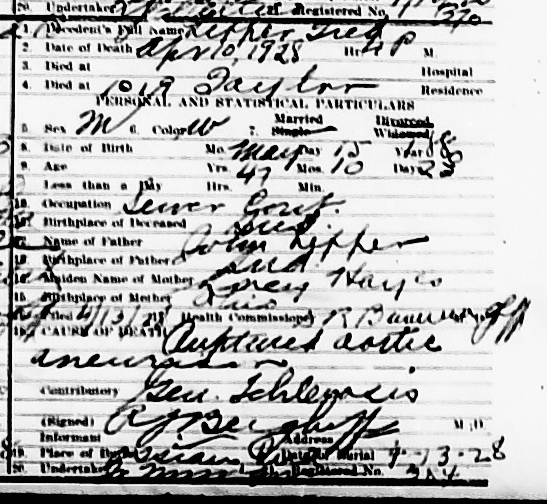 20. Undertaker Registered No. 370
1. Decedent's Full Name Lepper Fred
2. Date of Death Apr 10, 1928 Hr. P M.
3. Died at Hospital
4. Died at 1019 Taylor Residence
PERSONAL AND STATISTICAL PARTICULARS
5. Sex M 6. Color W 7. Married Single Divorced Widowed
8. Date of Birth Mo. May Day 15 Year
9. Age Yrs. 47 Mos. 10 Days
Less than a Day Hrs. Min.
10. Occupation Sewer Cont.
Birthplace of Deceased Ind.
Name of Father John Lepper
Birthplace of Father Ind
Maiden Name of Mother Hayes
Birthplace of Mother
Filed 4/13/28 Health Commissioner
CAUSE OF DEATH Ruptured aortic
aneurysm
Contributory Gen. Schlerosis
(Signed) M. D.
Informant Address
19. Place of Burial Date of Burial 4-13-28
20. Undertaker Registered No.